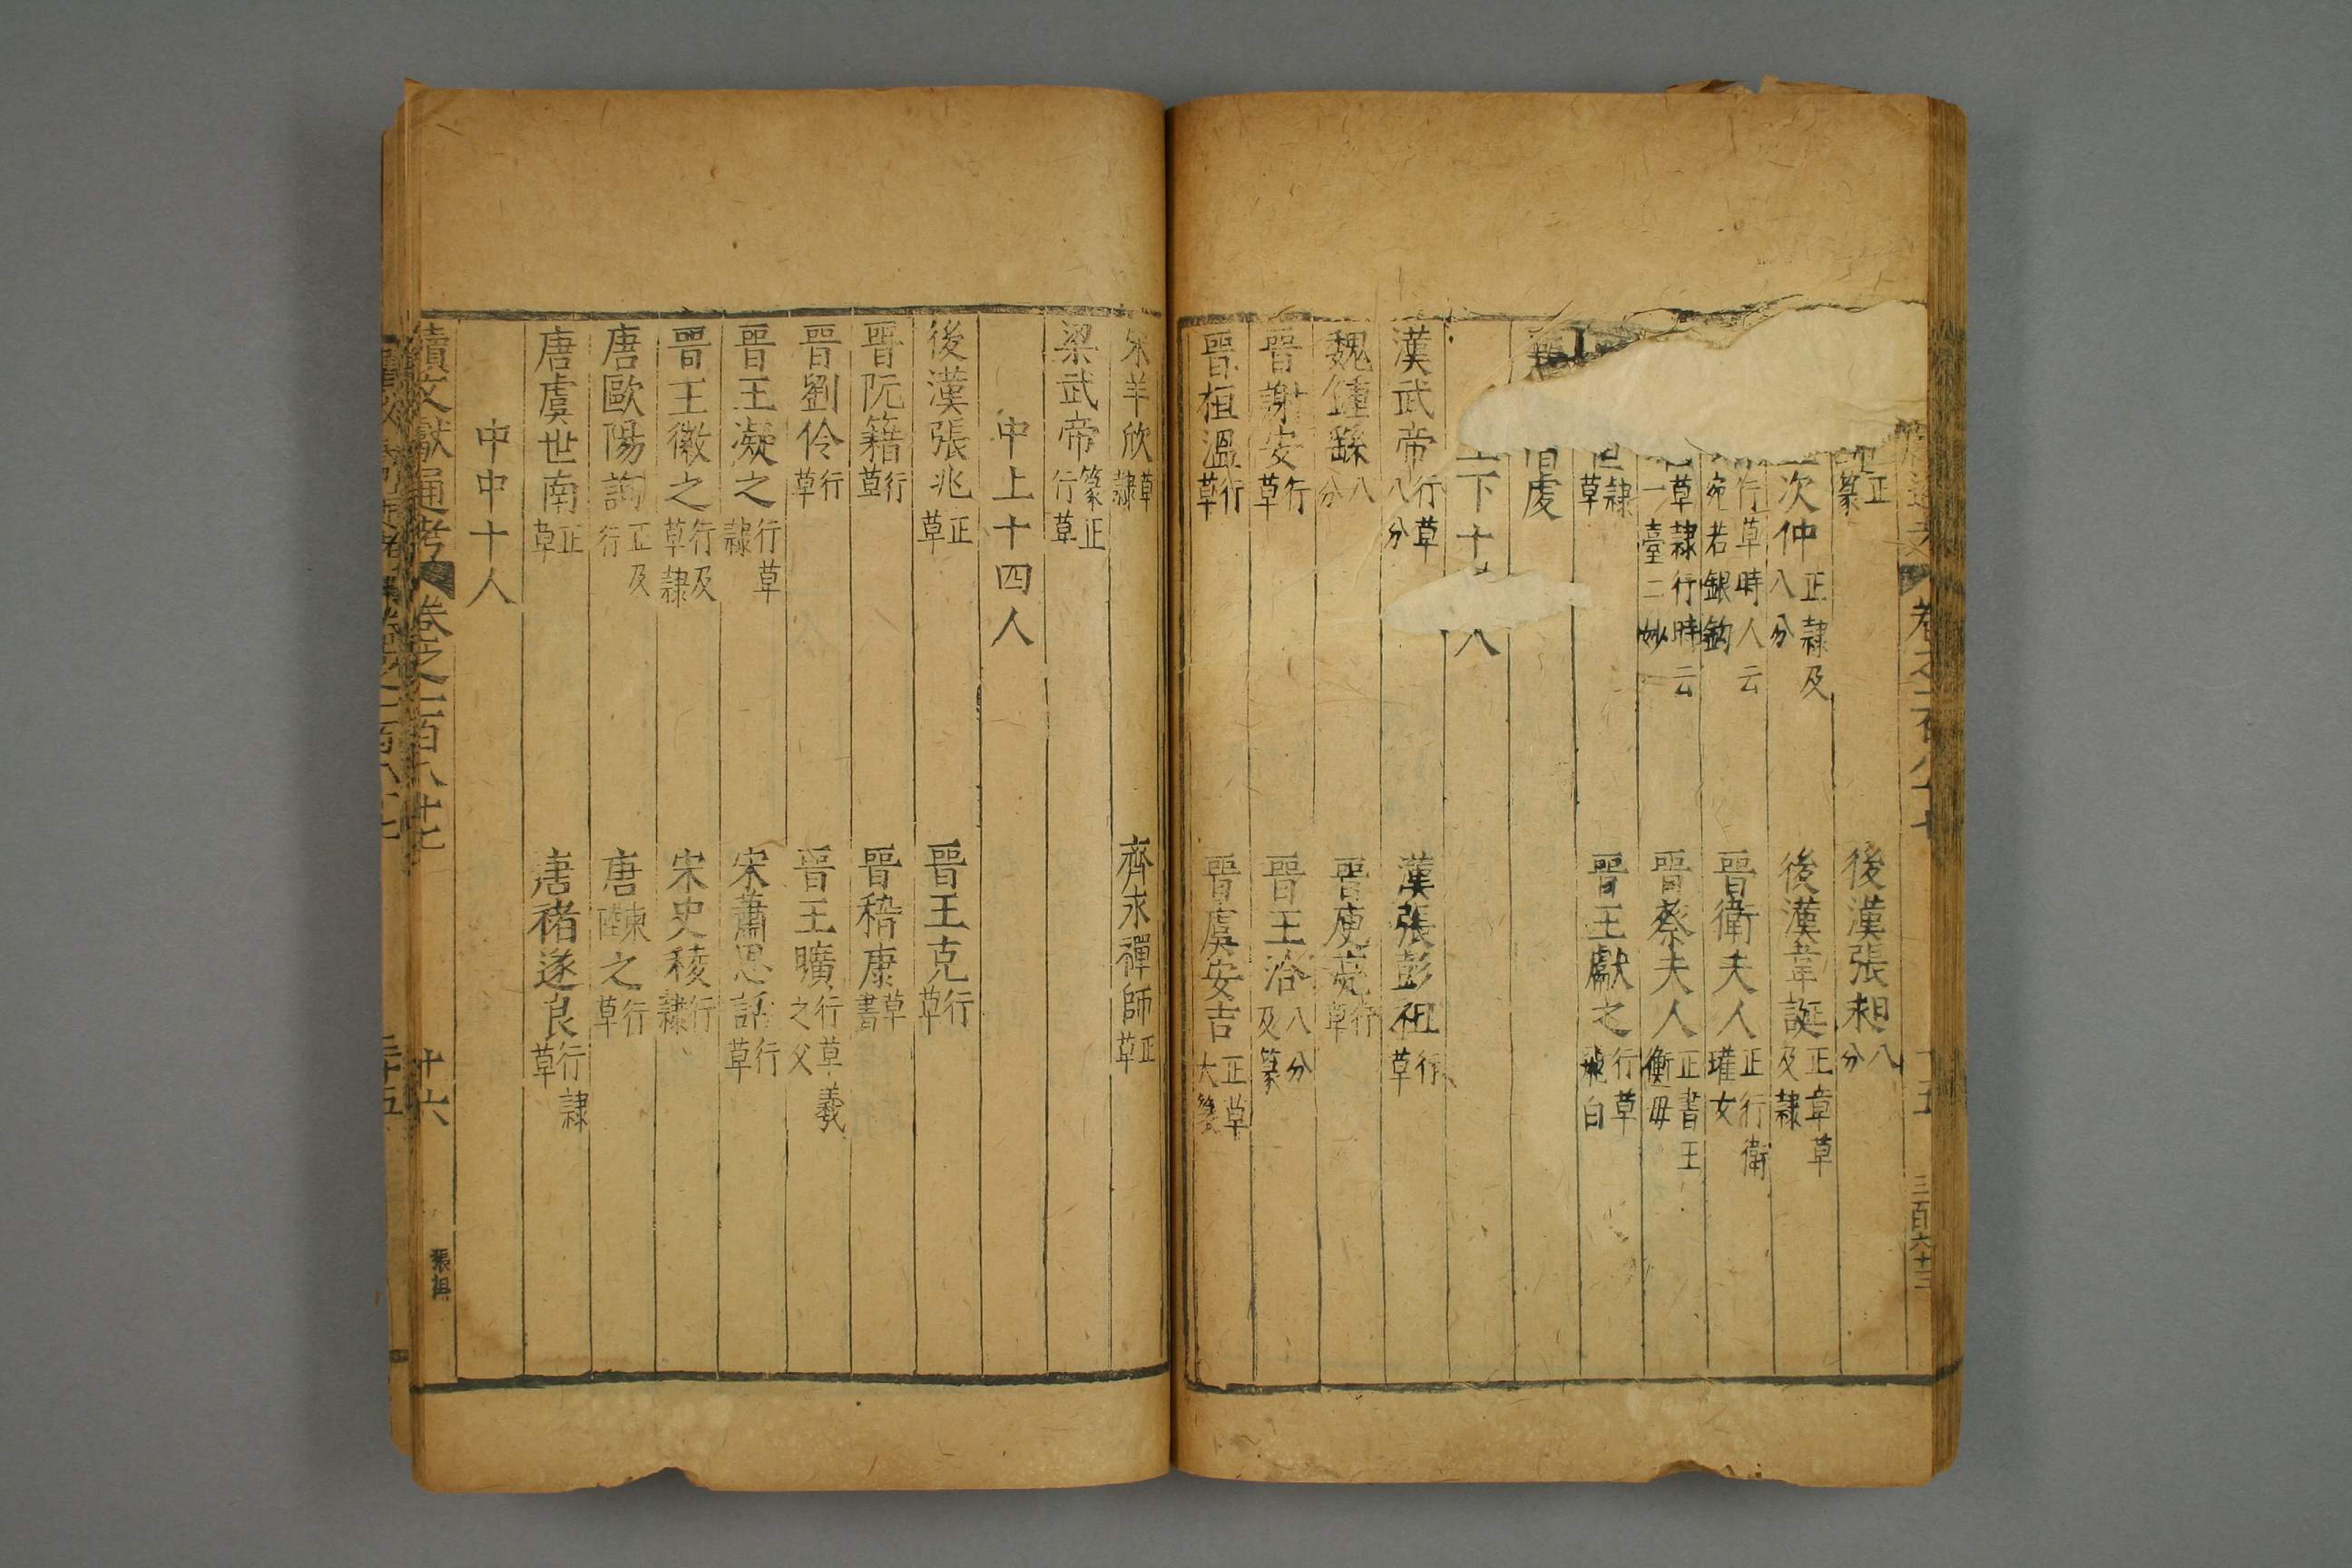 正篆 後漢張昶八分
次仲正隸及八分 後漢韋誕正章草及隸
行草時人云宛若銀鈎 晉衛夫人正行衛瓘女
草隸行時云一臺二妙 晉蔡夫人正書王衡毋
隸草 晉王獻之行草飛白
下十
漢武帝行草八分 漢張彭祖行草
魏鍾繇八分 晉庾亮行草
晉謝安行草 晉王洽八分及篆
晉桓溫行草 晉虞安吉正草大篆
宋羊欣草隸 齊永禪師正草
梁武帝篆正行草
中上十四人
後漢張兆正草 晉王克行草
晉阮籍行草 晉嵇康草書
晉劉伶行草 晉王曠行草羲之父
晉王凝之行草隸 宋蕭思話行草
晉王徽之行及草隸 宋史稜行隸
唐歐陽詢正及行 唐陳之行草
唐虞世南正草 唐褚遂良行隸草
中中十人
續文獻通考 卷之一百八十七 十六 張祖